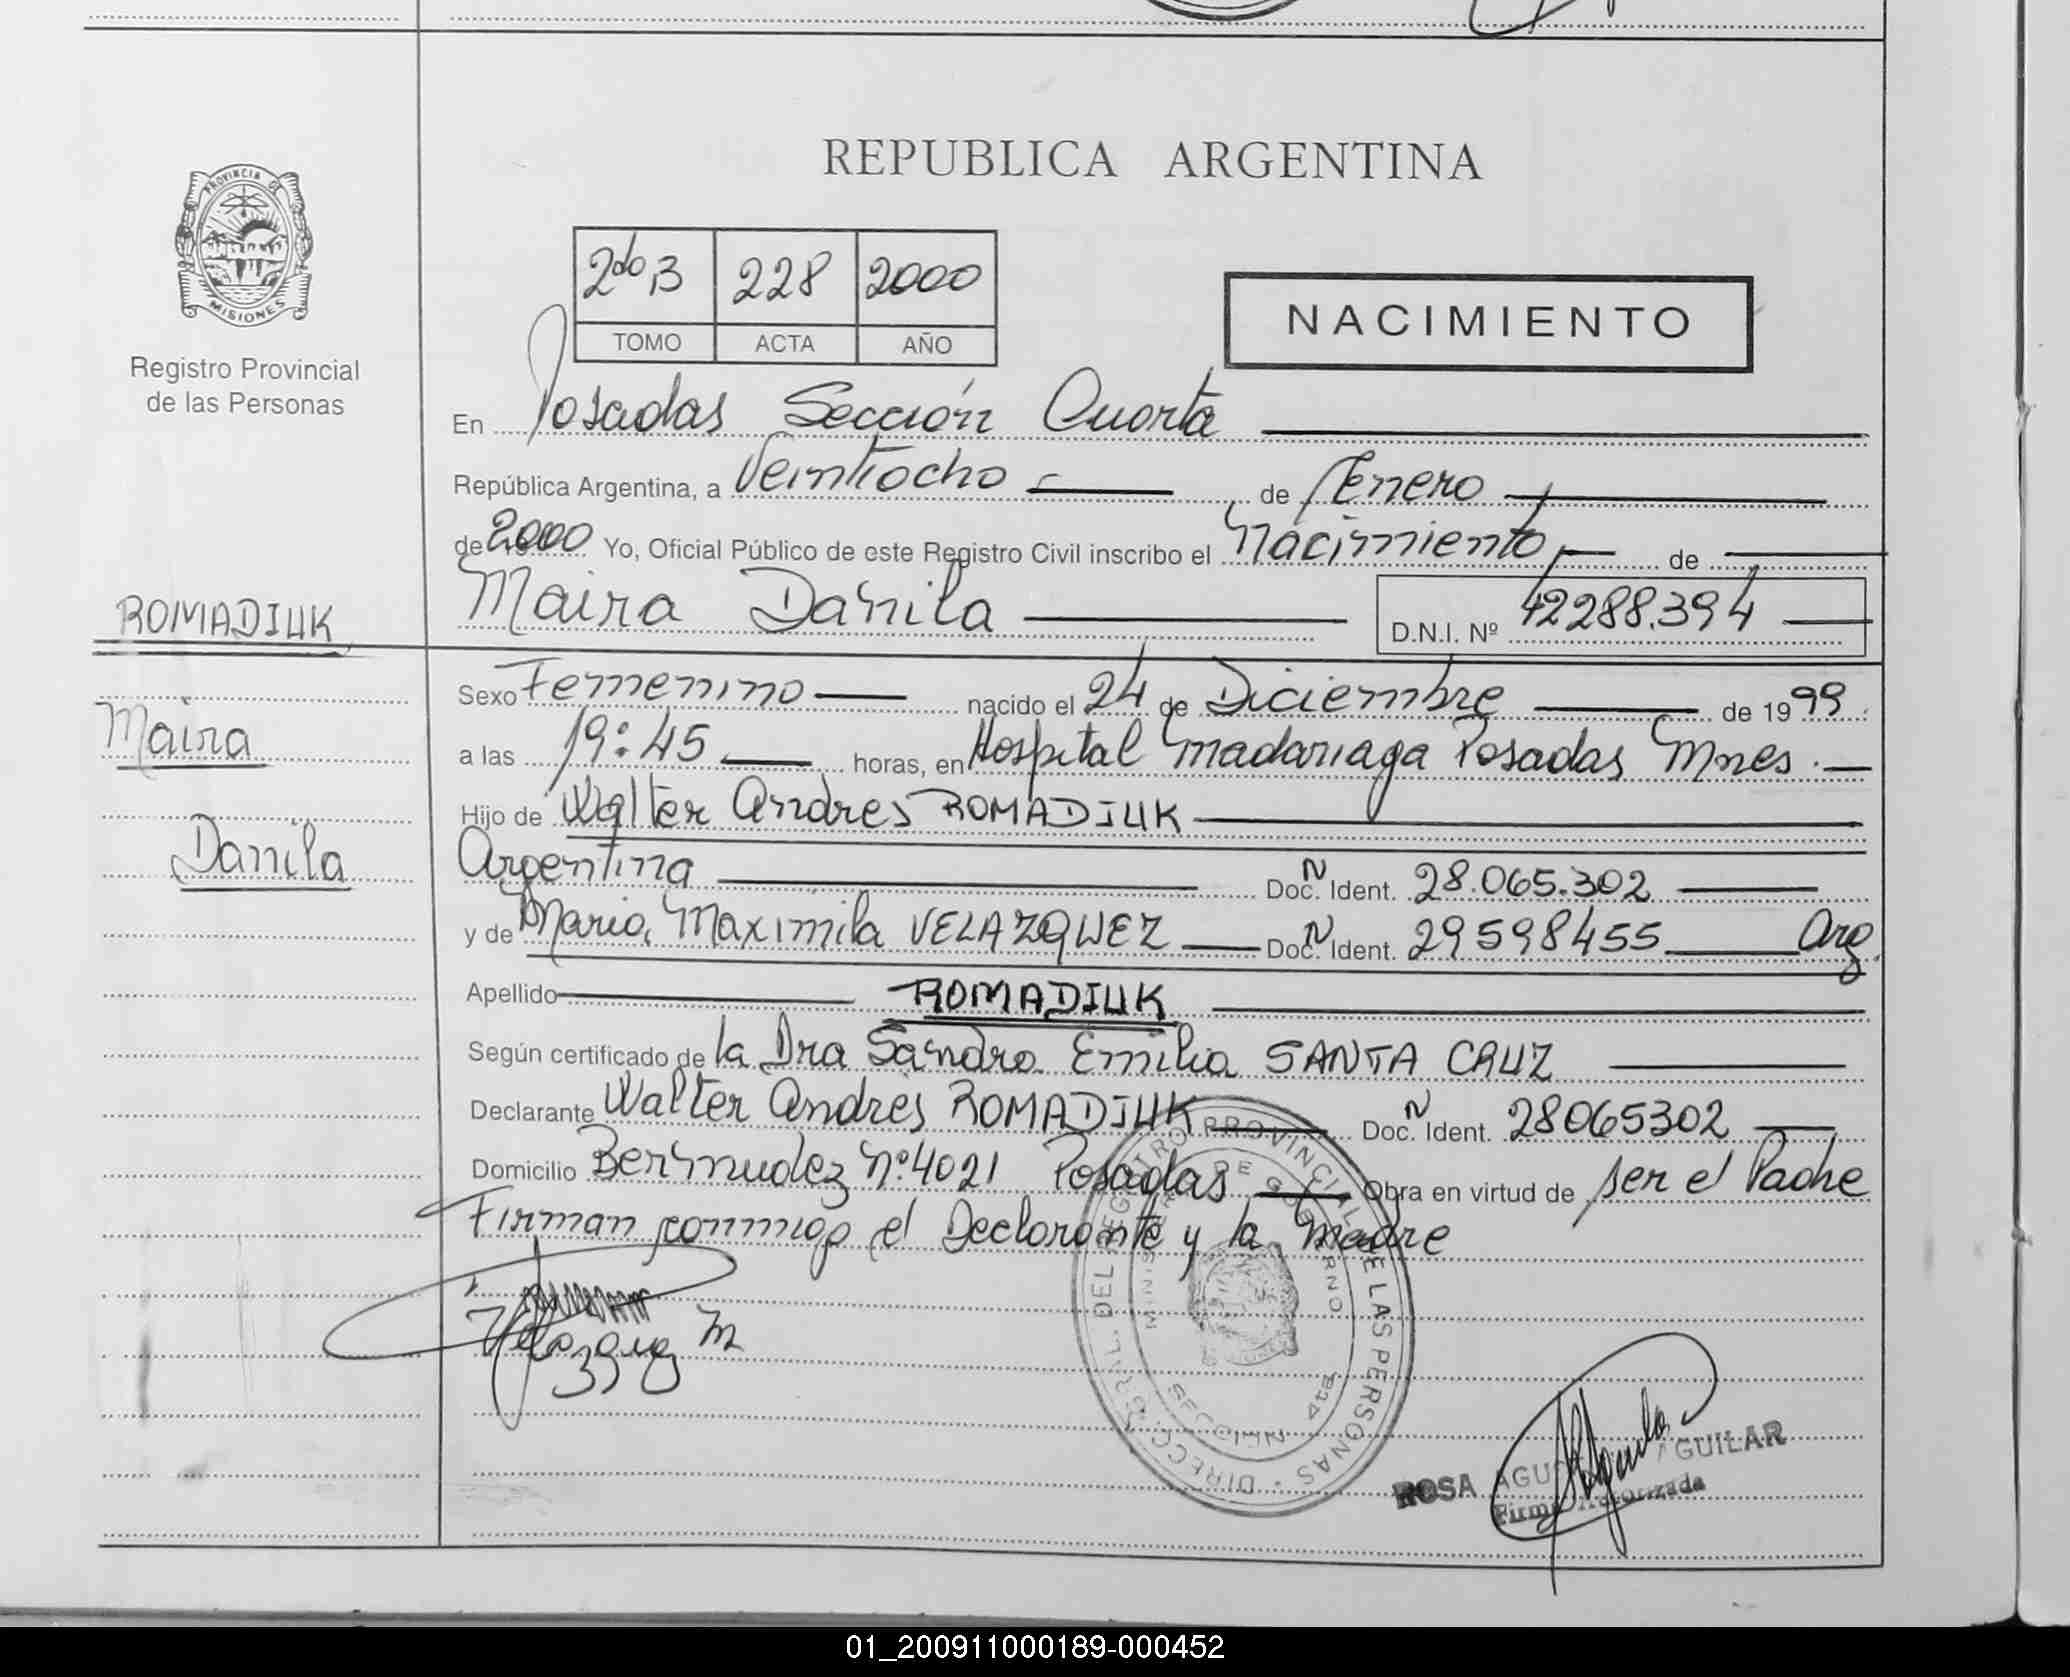 REPUBLICA ARGENTINA
PROVINCIA DE
MISIONES
Registro Provincial
de las Personas
2do B 228 2000
TOMO ACTA AÑO
NACIMIENTO
En Posadas Sección Cuarta
República Argentina, a Veintiocho de Enero
de 2000 Yo, Oficial Público de este Registro Civil inscribo el Nacimiento de
Maira Danila D.N.I. Nº 42288.394
ROMADIUK
Maira
Danila
Sexo Femenino nacido el 24 de Diciembre de 1999
a las 19:45 horas, en Hospital Madariaga Posadas Mnes.
Hijo de Walter Andres ROMADIUK
Argentina Doc. N Ident. 28.065.302
y de Maria Maximila VELAZQUEZ Doc. N Ident. 29598455 Arg.
Apellido ROMADIUK
Según certificado de la Dra Sandra Emilia SANTA CRUZ
Declarante Walter Andrés ROMADIUK Doc. N Ident. 28065302
Domicilio Bermudez Nº 4021 Posadas Obra en virtud de ser el Padre
Firman conmigo el Declarante y la Madre
Velazquez M
DIRECC. GRAL. DEL REGISTRO PROVINCIAL DE LAS PERSONAS
MINISTERIO DE GOBIERNO
SECCION 4ta
ROSA AGUILAR
Firma Autorizada
01_200911000189-000452